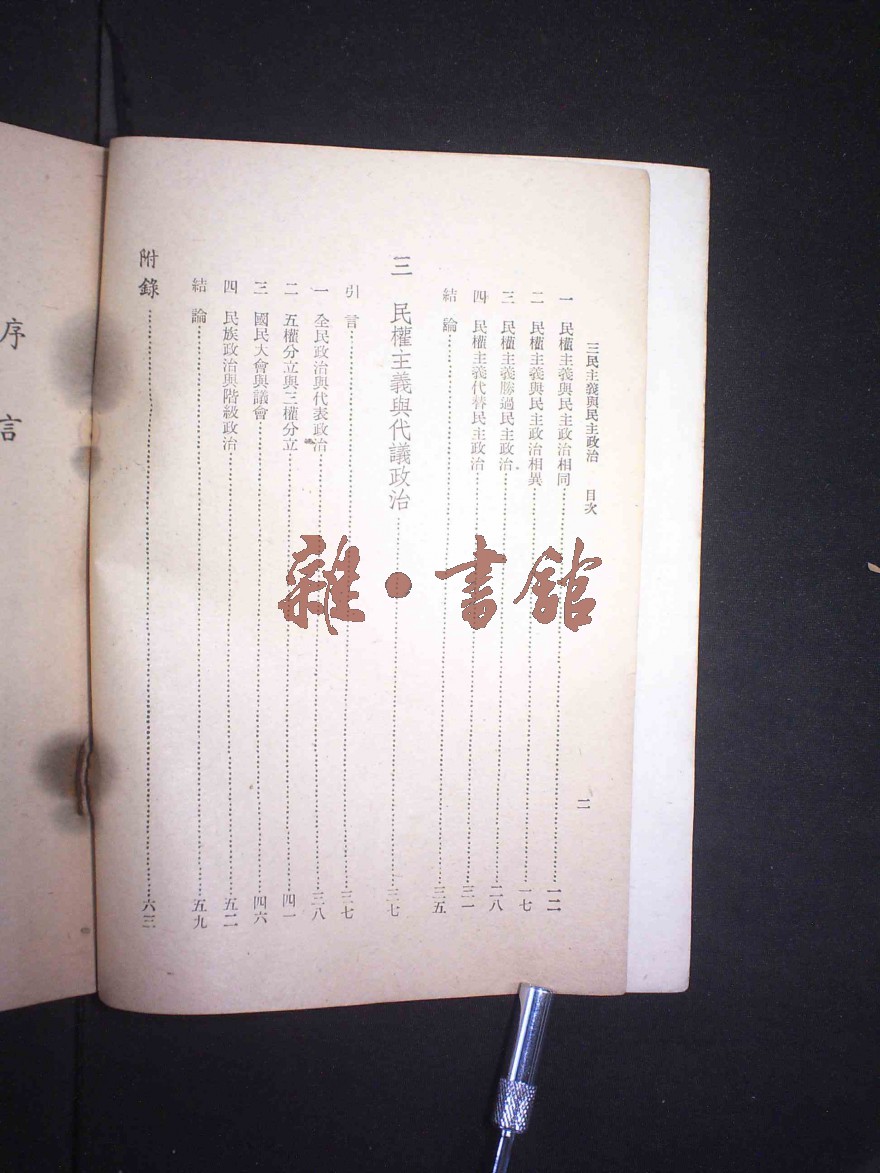 三民主義與民主政治　目次
二
一　民權主義與民主政治相同……一二
二　民權主義與民主政治相異……一七
三　民權主義勝過民主政治……二八
四　民權主義代替民主政治……三一
結論……三五
三　民權主義與代議政治……三七
引言……三七
一　全民政治與代表政治……三八
二　五權分立與三權分立……四一
三　國民大會與議會……四六
四　民族政治與階級政治……五二
結論……五九
附錄……六三
序言
雜·書館